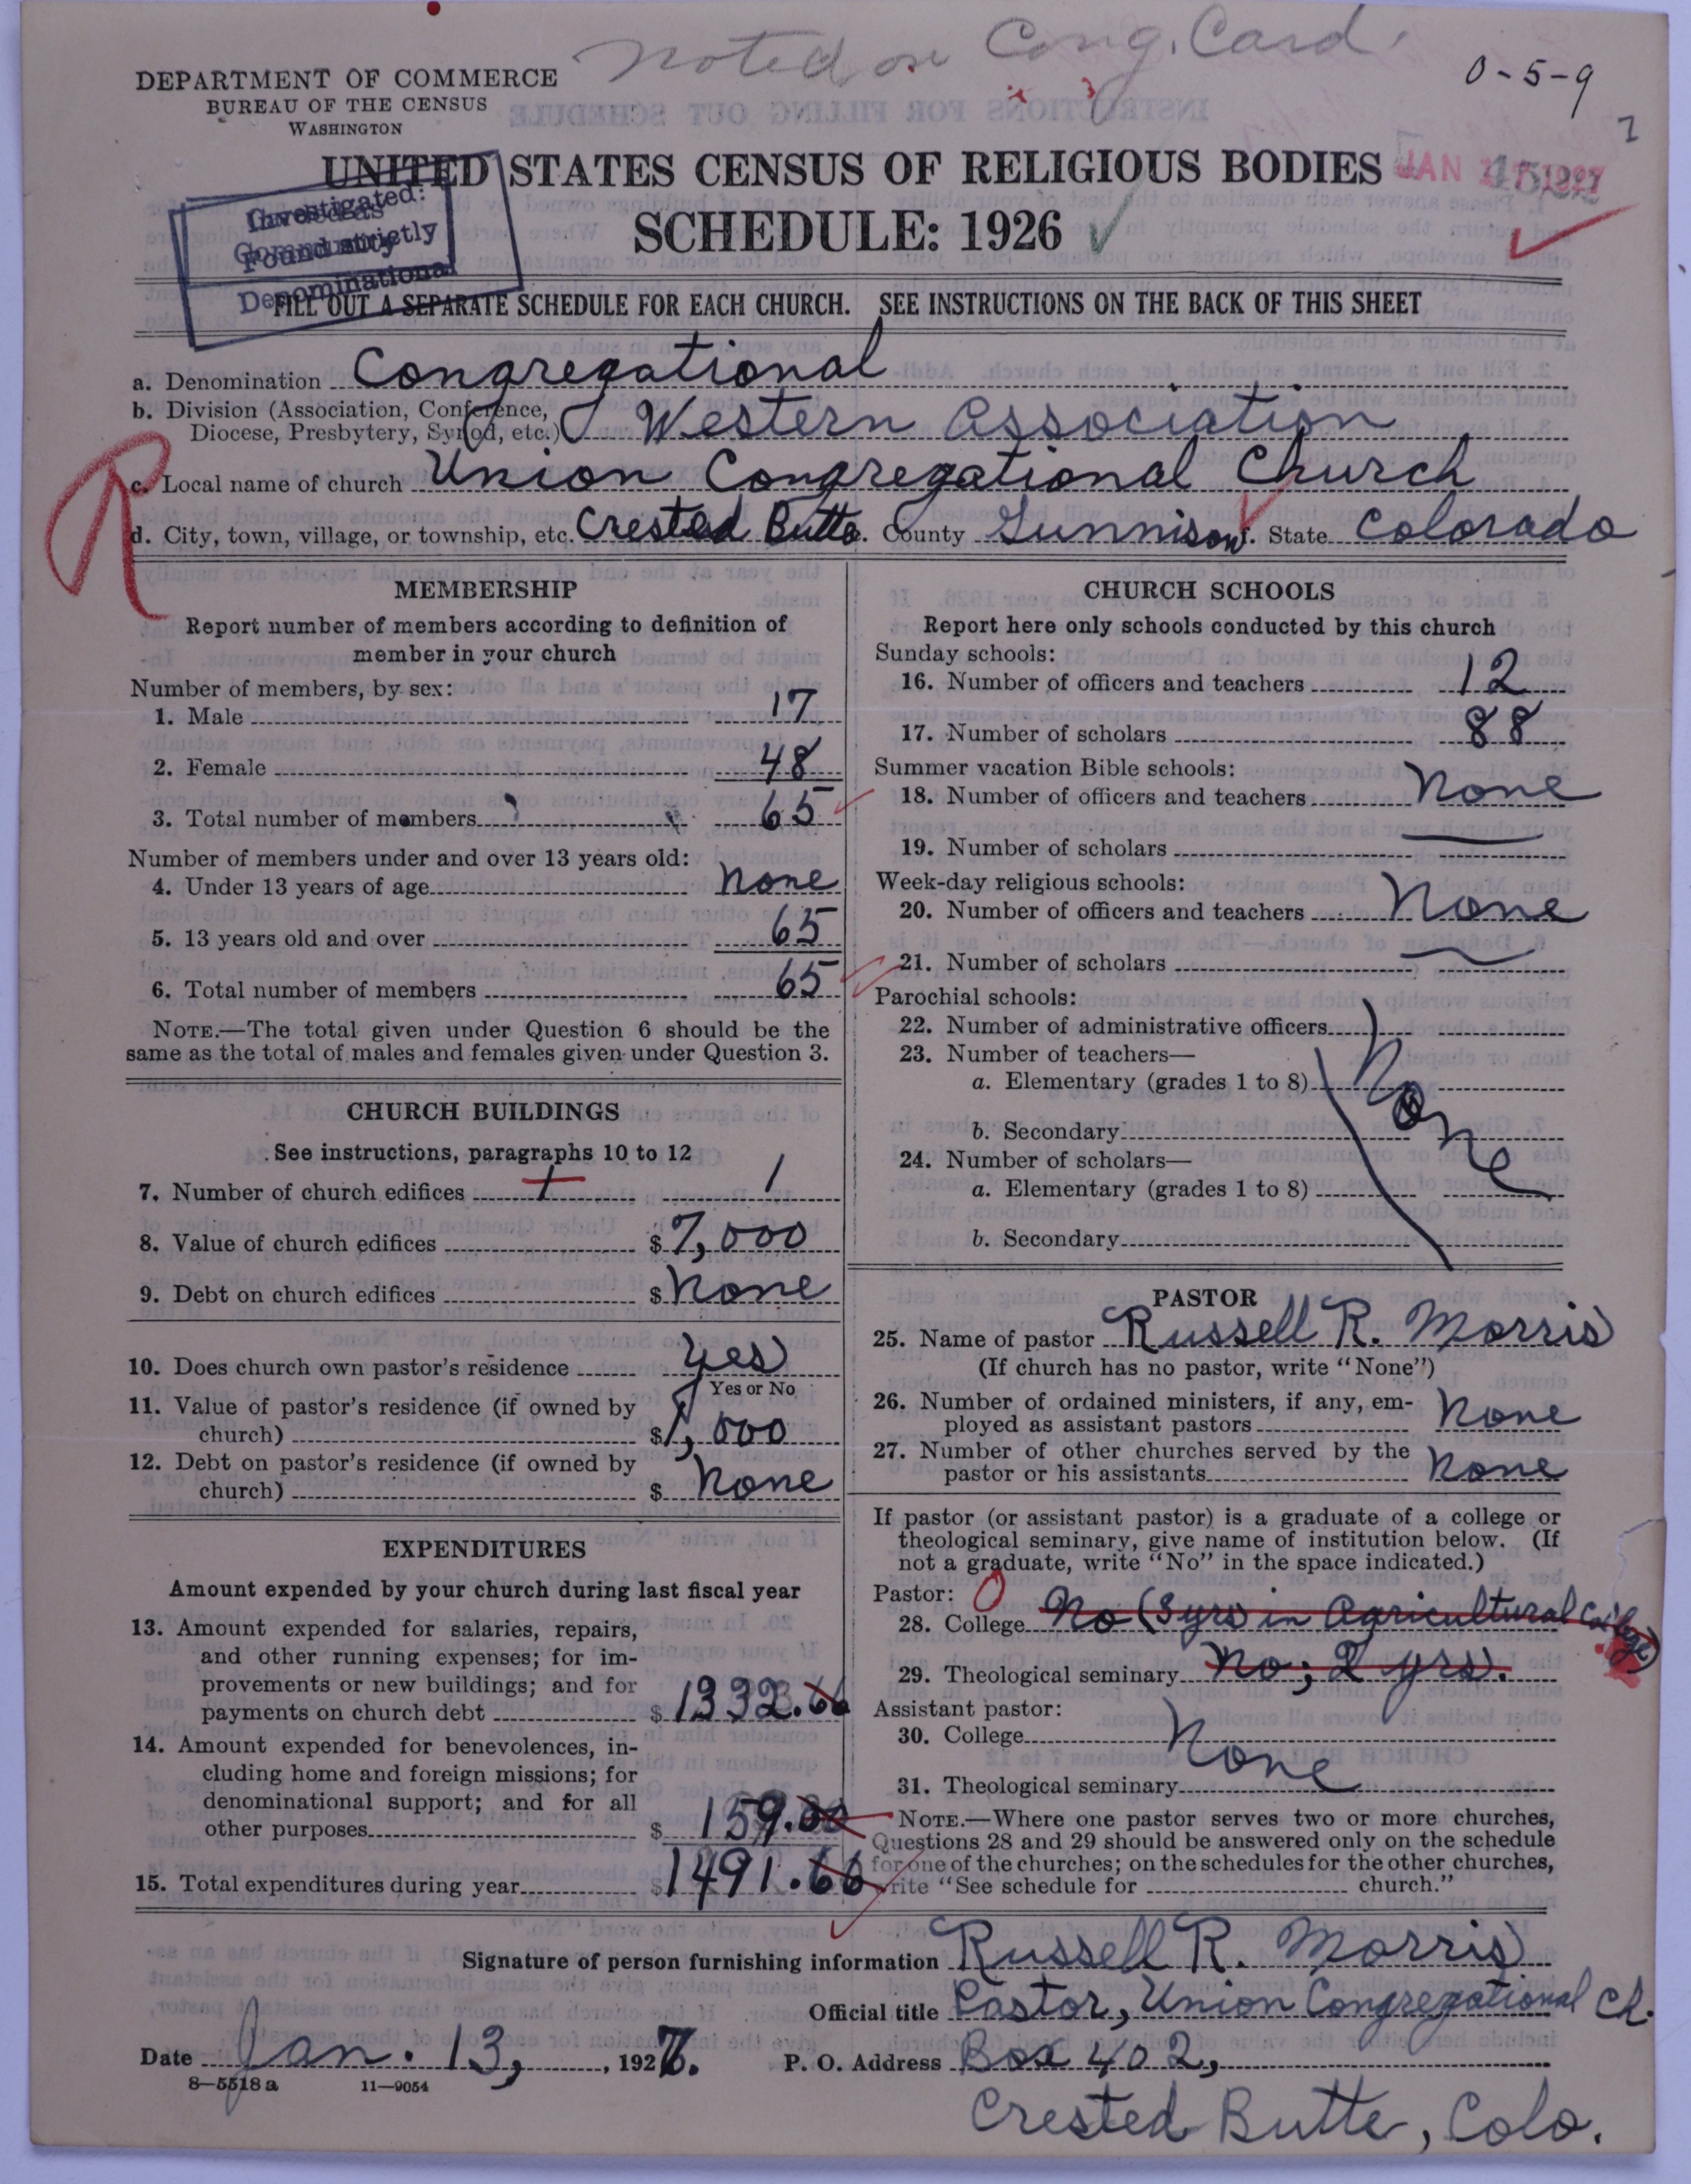 Noted on Cong. Card.
0-5-9
DEPARTMENT OF COMMERCE
BUREAU OF THE CENSUS
WASHINGTON
UNITED STATES CENSUS OF RELIGIOUS BODIES
JAN 1927
SCHEDULE: 1926
Investigated:
Found strictly
Denominational
FILL OUT A SEPARATE SCHEDULE FOR EACH CHURCH. SEE INSTRUCTIONS ON THE BACK OF THIS SHEET
a. Denomination Congregational
b. Division (Association, Conference,
Diocese, Presbytery, Synod, etc.) Western Association
R
c. Local name of church Union Congregational Church
d. City, town, village, or township, etc. Crested Butte. County Gunnison. State Colorado
MEMBERSHIP
Report number of members according to definition of
member in your church
Number of members, by sex:
1. Male 17
2. Female 48
3. Total number of members 65
Number of members under and over 13 years old:
4. Under 13 years of age None
5. 13 years old and over 65
6. Total number of members 65
NOTE.—The total given under Question 6 should be the
same as the total of males and females given under Question 3.
CHURCH BUILDINGS
See instructions, paragraphs 10 to 12
7. Number of church edifices 1
8. Value of church edifices $7,000
9. Debt on church edifices $ None
10. Does church own pastor's residence Yes
Yes or No
11. Value of pastor's residence (if owned by
church) $1,000
12. Debt on pastor's residence (if owned by
church) $ None
EXPENDITURES
Amount expended by your church during last fiscal year
13. Amount expended for salaries, repairs,
and other running expenses; for im-
provements or new buildings; and for
payments on church debt $1332.66
14. Amount expended for benevolences, in-
cluding home and foreign missions; for
denominational support; and for all
other purposes $159.00
15. Total expenditures during year $1491.66
CHURCH SCHOOLS
Report here only schools conducted by this church
Sunday schools:
16. Number of officers and teachers 12
17. Number of scholars 88
Summer vacation Bible schools:
18. Number of officers and teachers None
19. Number of scholars
Week-day religious schools:
20. Number of officers and teachers None
21. Number of scholars
Parochial schools:
22. Number of administrative officers
23. Number of teachers—
a. Elementary (grades 1 to 8) None
b. Secondary
24. Number of scholars—
a. Elementary (grades 1 to 8)
b. Secondary
PASTOR
25. Name of pastor Russell R. Morris
(If church has no pastor, write "None")
26. Number of ordained ministers, if any, em-
ployed as assistant pastors None
27. Number of other churches served by the
pastor or his assistants None
If pastor (or assistant pastor) is a graduate of a college or
theological seminary, give name of institution below. (If
not a graduate, write "No" in the space indicated.)
Pastor: 0
28. College No (3 yrs in Agricultural College)
29. Theological seminary No; 2 yrs.
Assistant pastor:
30. College None
31. Theological seminary
NOTE.—Where one pastor serves two or more churches,
Questions 28 and 29 should be answered only on the schedule
for one of the churches; on the schedules for the other churches,
write "See schedule for church."
Signature of person furnishing information Russell R. Morris
Official title Pastor, Union Congregational Ch.
Date Jan. 13, 1927. P. O. Address Box 402,
Crested Butte, Colo.
8—5518 a 11—9054